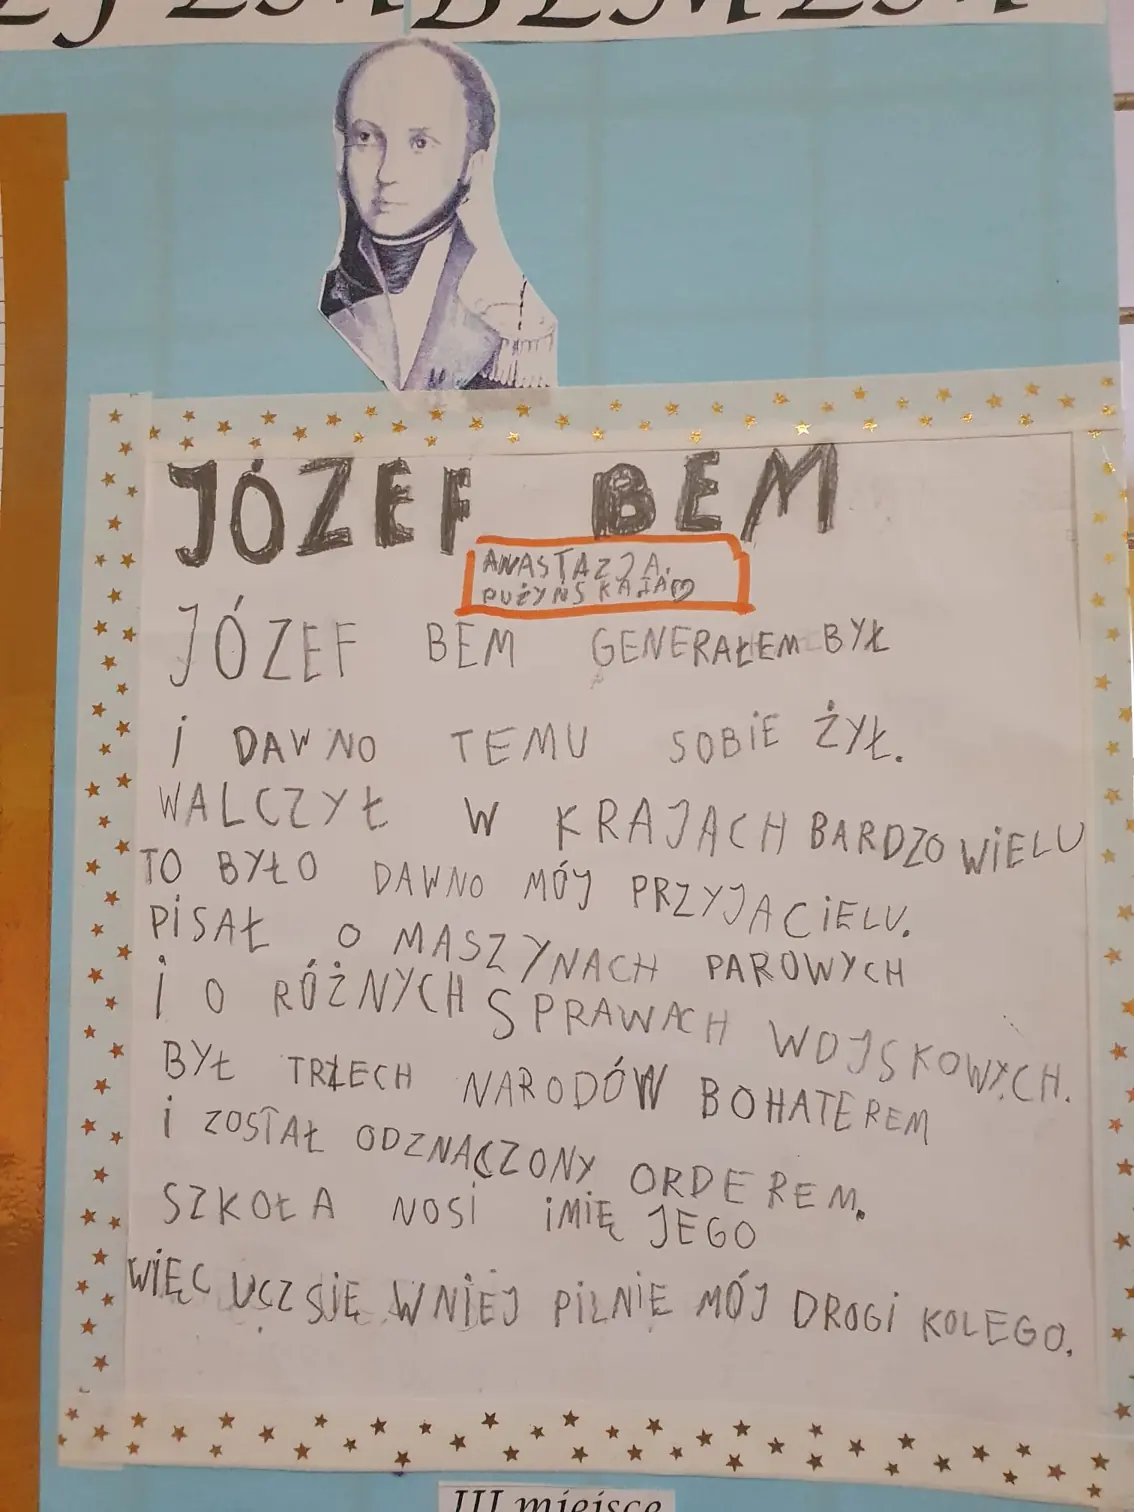 JÓZEF BEM
ANASTAZJA.
PUŻYŃSKA
JÓZEF BEM GENERAŁEM BYŁ
i DAWNO TEMU SOBiE ŻYŁ.
WALCZYŁ W KRAJACH BARDZO WiELU
TO BYŁO DAWNO MÓJ PRZYJACiELU.
PiSAŁ O MASZYNACH PAROWYCH
i O RÓŻNYCH SPRAWACH WOJSKOWYCH.
BYŁ TRZECH NARODÓW BOHATEREM
i ZOSTAŁ ODZNACZONY ORDEREM.
SZKOŁA NOSi iMIĘ JEGO
WiĘC UCZ SIĘ W NiEJ PiLNiE MÓJ DROGi KOLEGO.
III miejsce